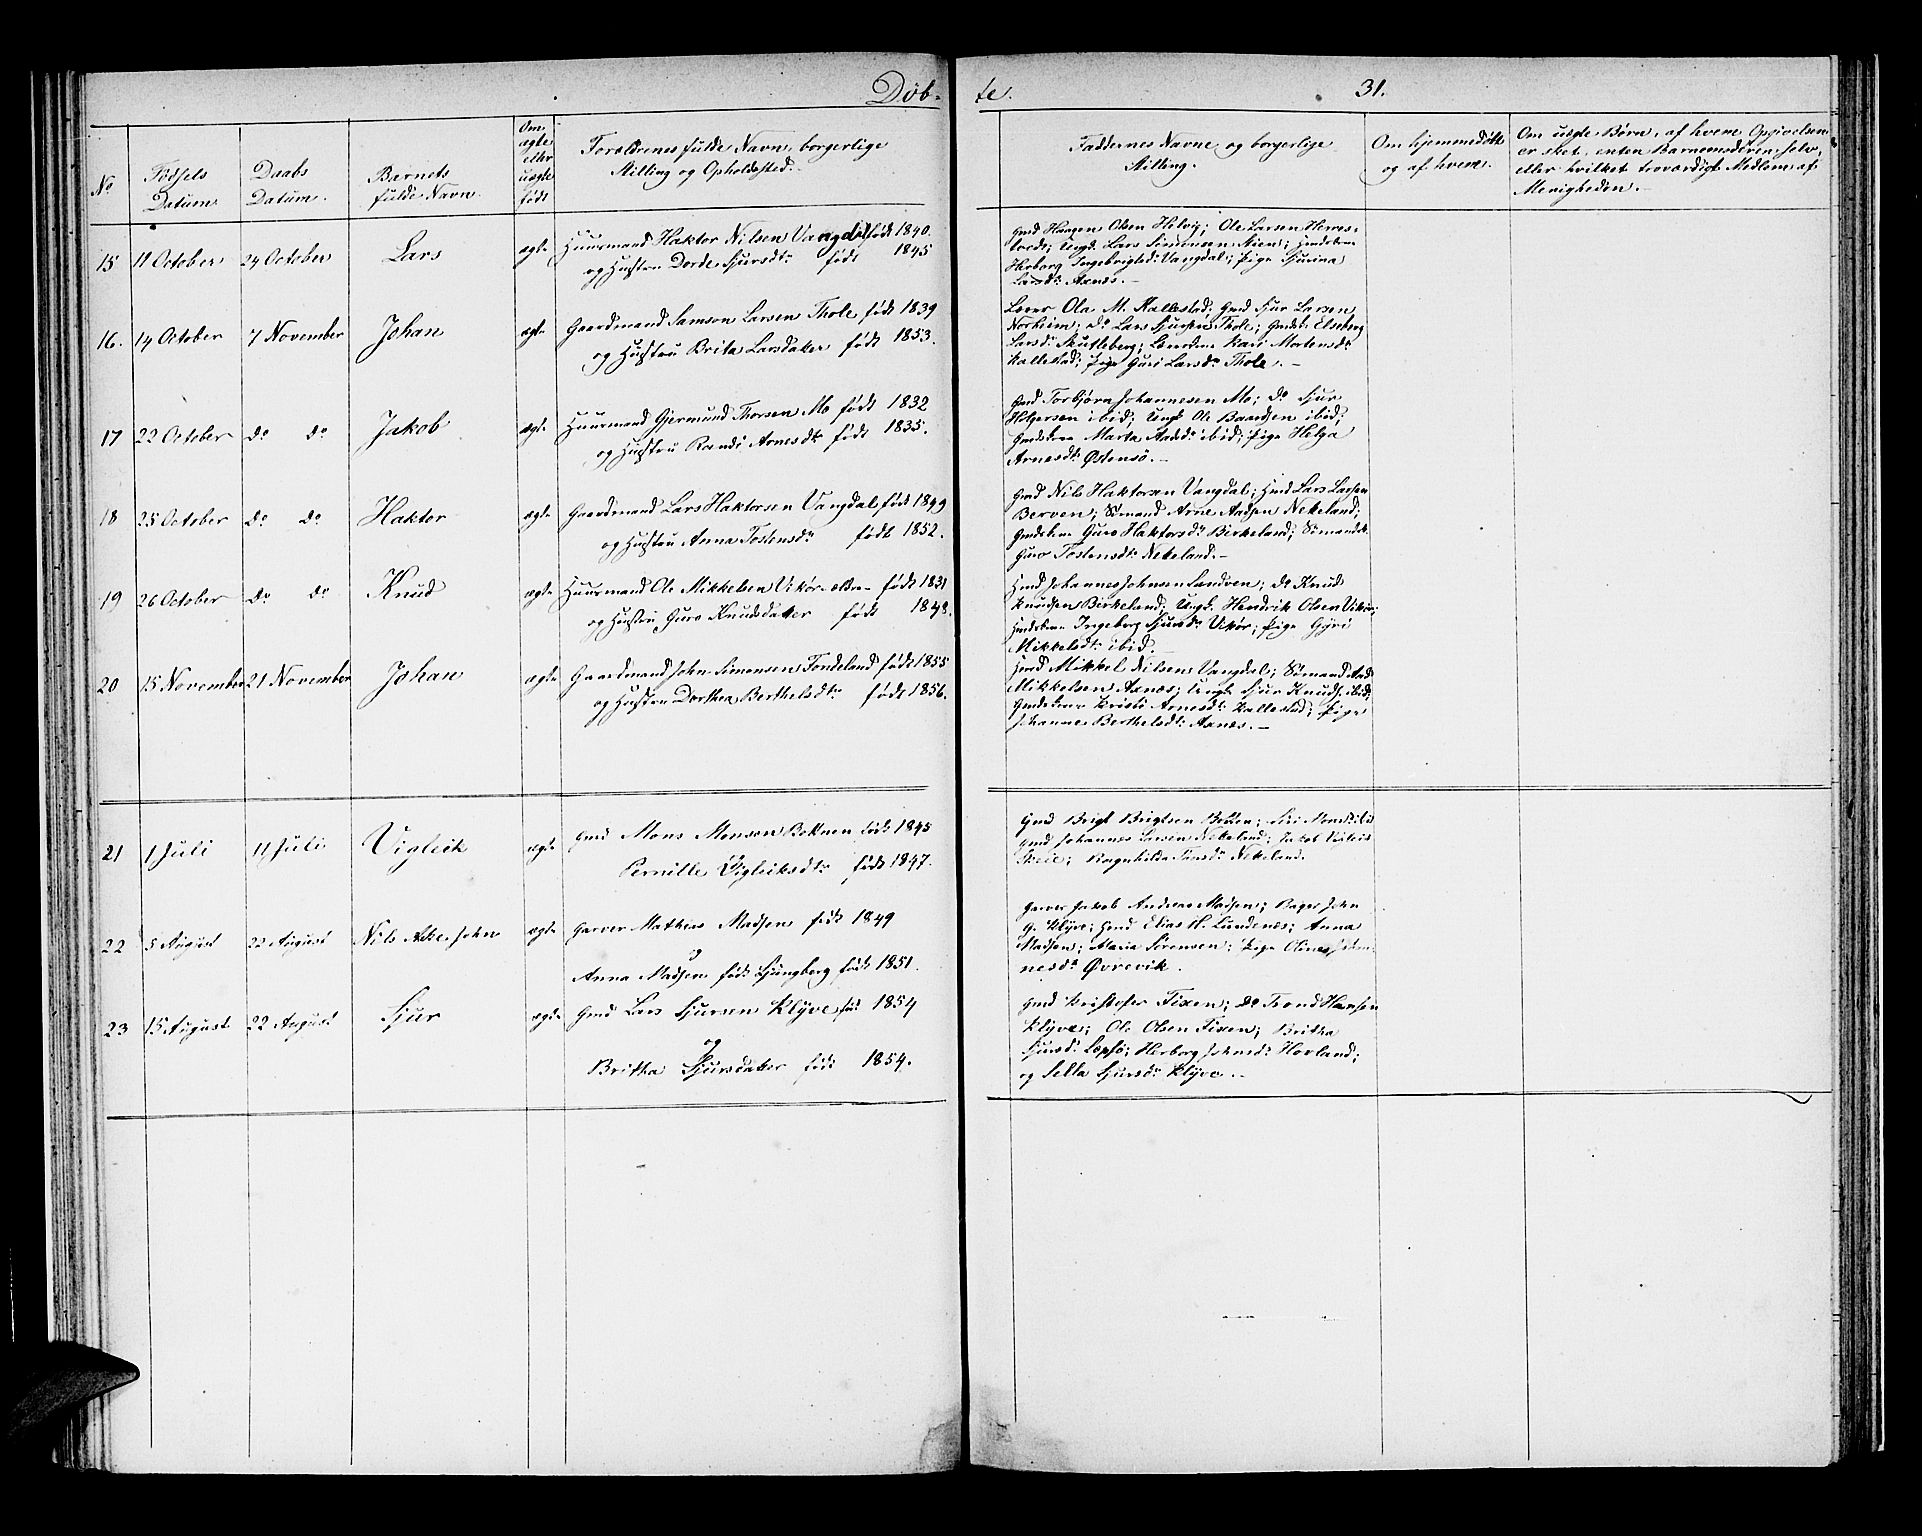 Døb-
te.
31.
No
Fødsels
Datum.
Daabs
Datum.
Barnets
fulde Navn.
Om
ægte
eller
uægte
født
Forældrenes fulde Navn, borgerlige
Stilling og Opholdssted.
Faddernes Navne og borgerlige
Stilling.
Om hjemmedøbt
og af hvem.
Om uægte Børn, af hvem Opgivelsen
er sket, enten Barnemoderen selv,
eller hvilket troværdigt Medlem af
Menigheden.
15 11 October 24 October Lars ægte Huusmand Haktor Nilsen Vangdal født 1840.
og Hustru Dorde Sjursdtr født 1845
Gmd Haagen Olsen Helvig; Ole Larsen
Ungk. Lars Simonsen
Herborg Ingebrigtsdr Vangdal; Pige Sjurina
Larsdtr Axnes.
16. 14 October 7 November Johan ægte Gaardmand Samson Larsen Thole født 1839
og Hustru Brita Larsdatter født 1853.
Lærer Ola M. Kallestad; Gmd Sjur Larsen
Norheim; Do Lars Sjursen Thole;
Larsdr Skutleberg; Kari Mortensdtr
Kallestad; Pige Guri Larsdr Thole.
17 22 October Do Do Jakob ægte Huusmand Gjermund Thorsen Mo født 1832
og Hustru Randi Arnesdtr født 1835.
Gmd Torbjørn Johannesen Mo; Do Sjur
Helgesen ibid; Ungk Ole ibid;
Marta ibid; Pige Helga
Arnesdtr Østensø.
18 25 October Do Do Haktor ægte Gaardmand Lars Haktorsen Vangdal født 1849
og Hustru Anna Tostensdtr født 1852.
Gmd Nils Haktorsen Vangdal; Hmd Lars Larsen
Berven; Sømand Arne Aadsen Nekeland;
Guro Haktorsdr Birkeland;
Guro Tostensdtr Nekeland.
19 26 October Do Do Knud ægte Huusmand Ole Mikkelsen Vikør født 1831
og Hustru Guro Knudsdatter født 1848.
Hmd Johannes Johnsen Sandven; Do Knud
Knudsen Birkeland; Ungk. Hendrik Olsen Vikør;
Ingeborg Sjursdr Vikør; Pige Gyri
Mikkelsdtr ibid.
20 15 November 21 November Johan ægte Gaardmand John Simonsen Tondeland født 1855
og Hustru Dorthea Berthelsdtr født 1856.
Hmd Mikkel Nilsen Vangdal; Sømand Aad
Mikkelsen Axnes; Ungk Sjur Knuds. ibid;
Kristi Arnesdtr Kallestad; Pige
Johanne Berthelsdtr Axnes.
21 1 Juli 11 Juli Vigleik ægte Gmd Mons Monsen født 1845
Pernille Vigleiksdtr født 1847.
Gmd Brigt Brigtsen
Gmd Johannes Larsen Nekeland; Jakob
Skeie; Ragnhilda Nekeland.
22 5 August 22 August Nils John ægte Garver Mathias Madsen født 1849
og
Anna Madsen født Ljungberg født 1851.
Garver Jakob Andreas Madsen; Bager John
G. Klyve; Hmd Elias H. Lundenes; Anna
Madsen; Maria Sørensen; Pige Oline Johan-
nesdtr Øvrevik.
23 15 August 22 August Sjur ægte Gmd Lars Sjursen Klyve fød 1854
og
Britha Sjursdatter født 1854.
Gmd Kristofer Fixen; Do Trond Hansen
Klyve; Ole Olsen Fixen; Britha
Sjursdr Lepsø; Herborg Johnsdr Hovland;
og Sella Sjursdr Klyve.